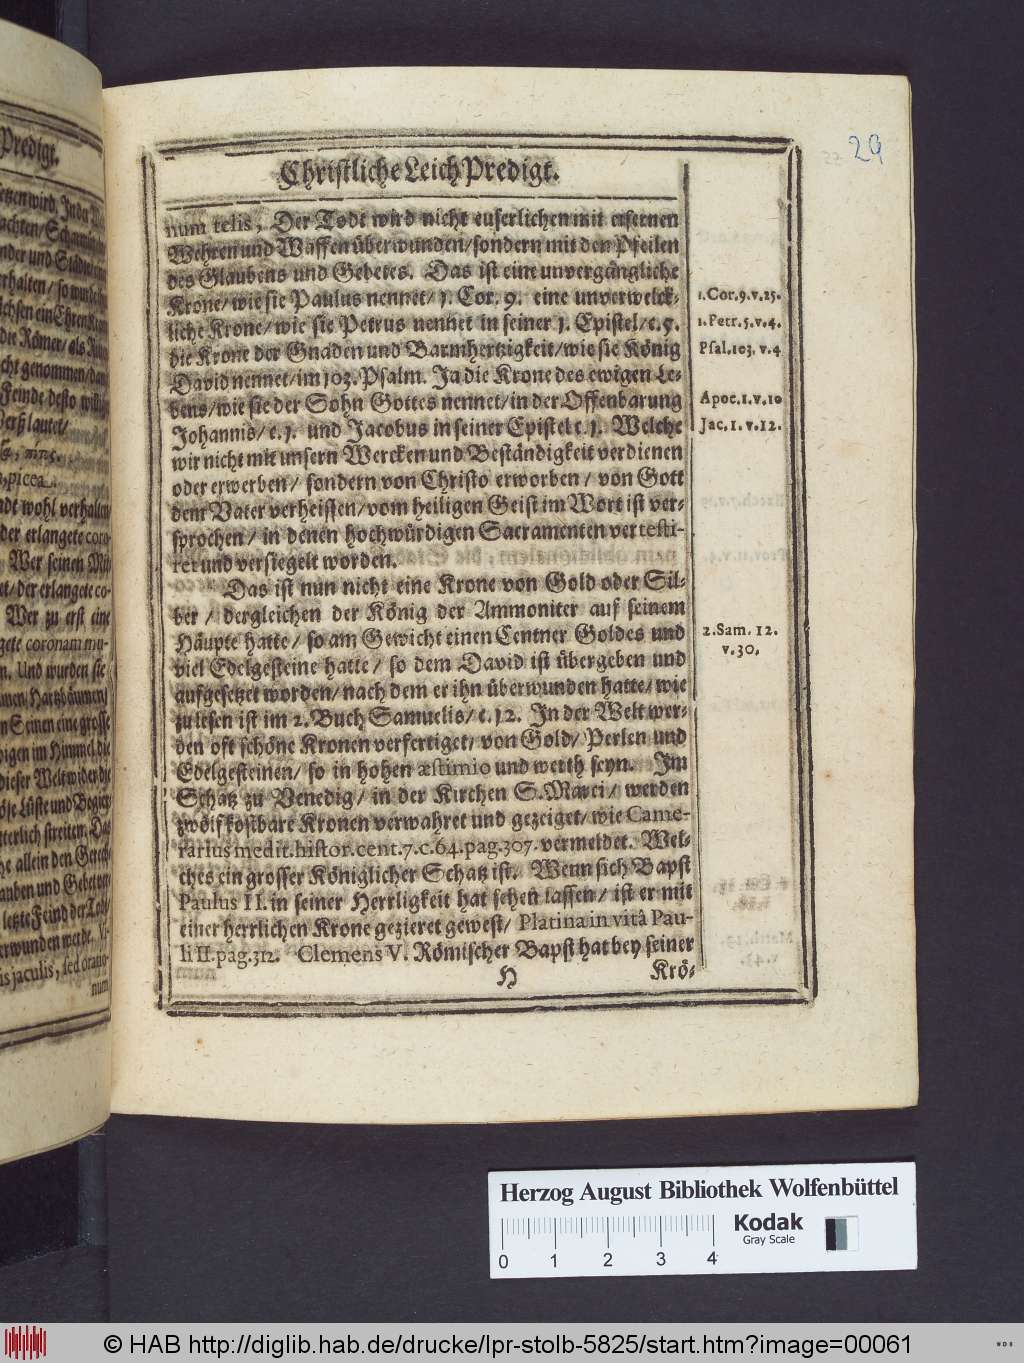 Predigt.
29
Christliche Leich Predigt.
num telis, Der Todt wird nicht euserlichen mit eisernen
Wehren und Waffen überwunden/ sondern mit den Pfeilen
des Glaubens und Gebetes. Das ist eine unvergängliche
Krone/ wie sie Paulus nennet/ 1. Cor. 9. eine unverwelck-
liche Krone/ wie sie Petrus nennet in seiner 1. Epistel/ c. 5.
die Krone der Gnaden und Barmhertzigkeit/ wie sie König
David nennet/ im 103. Psalm. Ja die Krone des ewigen Le-
bens/ wie sie der Sohn Gottes nennet/ in der Offenbarung
Johannis/ c. 1. und Jacobus in seiner Epistel c. 1. Welche
wir nicht mit unsern Wercken und Beständigkeit verdienen
oder erwerben/ sondern von Christo erworben/ von Gott
dem Vater verheissen/ vom heiligen Geist im Wort ist ver-
sprochen/ in denen hochwürdigen Sacramenten vertesti-
ret und versiegelt worden.
Das ist nun nicht eine Krone von Gold oder Sil-
ber/ dergleichen der König der Ammoniter auf seinem
Häupte hatte/ so am Gewicht einen Centner Goldes und
viel Edelgesteine hatte/ so dem David ist übergeben und
aufgesetzet worden/ nach dem er ihn überwunden hatte/ wie
zu lesen ist im 2. Buch Samuelis/ c. 12. In der Welt wer-
den oft schöne Kronen verfertiget/ von Gold/ Perlen und
Edelgesteinen/ so in hohen æstimio und werth seyn. Im
Schatz zu Venedig/ in der Kirchen S. Marci/ werden
zwölf kostbare Kronen verwahret und gezeiget/ wie Came-
rarius medit. histor. cent. 7. c. 64. pag. 307. vermeldet. Wel-
ches ein grosser Königlicher Schatz ist. Wenn sich Bapst
Paulus II. in seiner Herrligkeit hat sehen lassen/ ist er mit
einer herrlichen Krone gezieret gewest/ Platina in vitâ Pau-
li II. pag. 312. Clemens V. Römischer Bapst hat bey seiner
H
Krö-
1. Cor. 9. v. 25.
1. Petr. 5. v. 4.
Psal. 103. v. 4
Apoc. 1. v. 10
Jac. 1. v. 12.
2. Sam. 12.
v. 30.
Herzog August Bibliothek Wolfenbüttel
0 1 2 3 4
Kodak
Gray Scale
© HAB http://diglib.hab.de/drucke/lpr-stolb-5825/start.htm?image=00061